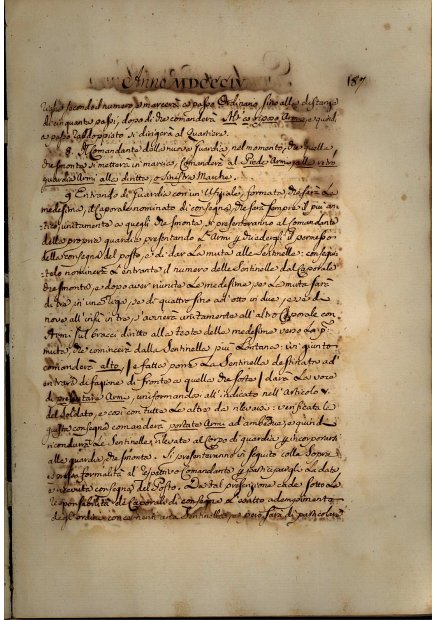 Anno MDCCCIV
187
secondo il numero e marcerà a passo Ordinario, sino alla distanza
di cinquanta passi; dopo di che comanderà Armi, e quindi
a passo raddoppiato si dirigerà al Quartiere.
8. Il Comandante della nuova Guardia nel momento, che quella
che smonta si metterà in marcia, Comanderà al Piede Arm, alla
guardia Armi alla diritta, o Sinistra Marche.
9. Entrando di Guardia con un Ufiziale, formata che sarà la
medesima, il Caporale nominato di consegna, che sarà sempre il più an-
unitamente a quegli che smonta, si presenteranno al Comandante
della propria guardia presentando l'Armi, il permesso
della consegna del posto, e di dar la muta alle Sentinelle:
nominerà l'entrante il numero delle Sentinelle dal Caporale
che smonta, e dopo aver riunite le medesime, se la muta sarà
di tre in una riga, se di quattro sino ad otto in due, e se di
nove all' in tre, s'avvierà unitamente all'altro Caporale con
Armi sul braccio diritto alla testa delle medesime verso la p:
muta, che comincerà dalla Sentinella più lontana: ivi giunto
comanderà alto, e fatta porre la Sentinella destinata ad
entrare di fazione di fronte a quella che sorte, darà la voce
di presentate Armi, uniformando all'indicato nell'Articolo
del Soldato, e così con tutte le altre da rilevarsi: verificata la
consegna comanderà portate Armi ad ambedue, e quindi
ricondurrà le Sentinelle rilevate al Corpo di guardia,
alla guardia che smonta. Si presenteranno in seguito colle Sopra
formalità al rispettivo Comandante la data,
e ricevuta consegna del Posto. Da tal precisione cade sotto la
responsabilità del Caporale di consegna l'esatto adempimento
degli ordini concernenti una Sentinella, e però sarà di particolare